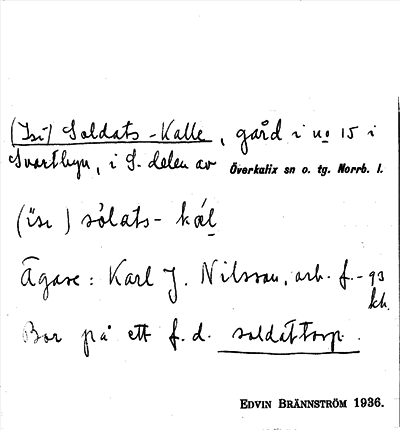 (Isi) Soldats-Kalle, gård i no 15 i
Svartbyn, i S. delen av Överkalix sn o. tg. Norrb. l.
(isı) sòlats- kál
Ägare: Karl J. Nilsson, arb. f. -93
kh.
Bor på ett f. d. soldattorp.
EDVIN BRÄNNSTRÖM 1936.